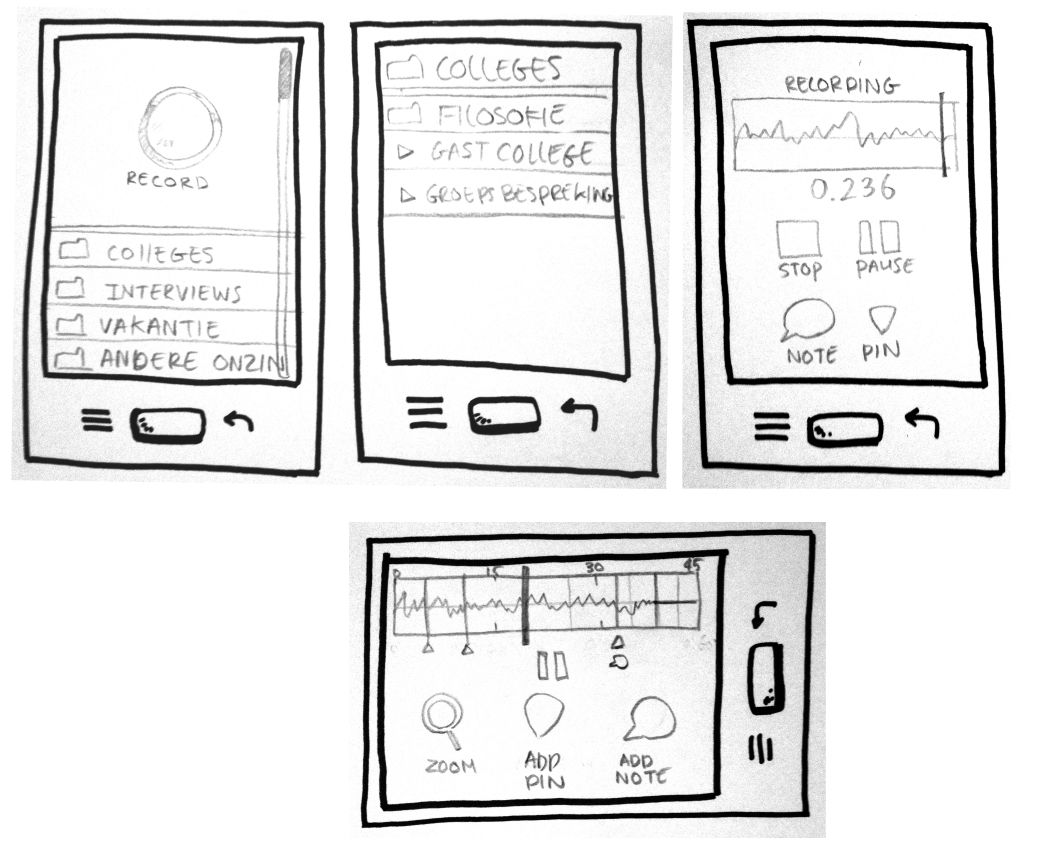 RECORD
COllEGES
INTERVIEWS
VAKANTIE
ANDERE ONZIN
COLLEGES
FILOSOFIE
GAST COLLEGE
GROEPSBESPREKING
RECORDING
0.236
STOP PAUSE
NOTE PIN
0 15 30 45
ZOOM
ADD PIN
ADD NOTE